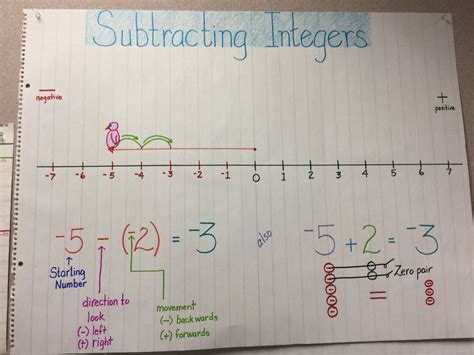 Subtracting Integers
−
negative
+
positive
-7 -6 -5 -4 -3 -2 -1 0 1 2 3 4 5 6 7
⁻5 − (⁻2) = ⁻3
Starting
Number
direction to
look
(-) left
(+) right
movement
(-) backwards
(+) forwards
also
⁻5 + 2 = ⁻3
Zero pair
=